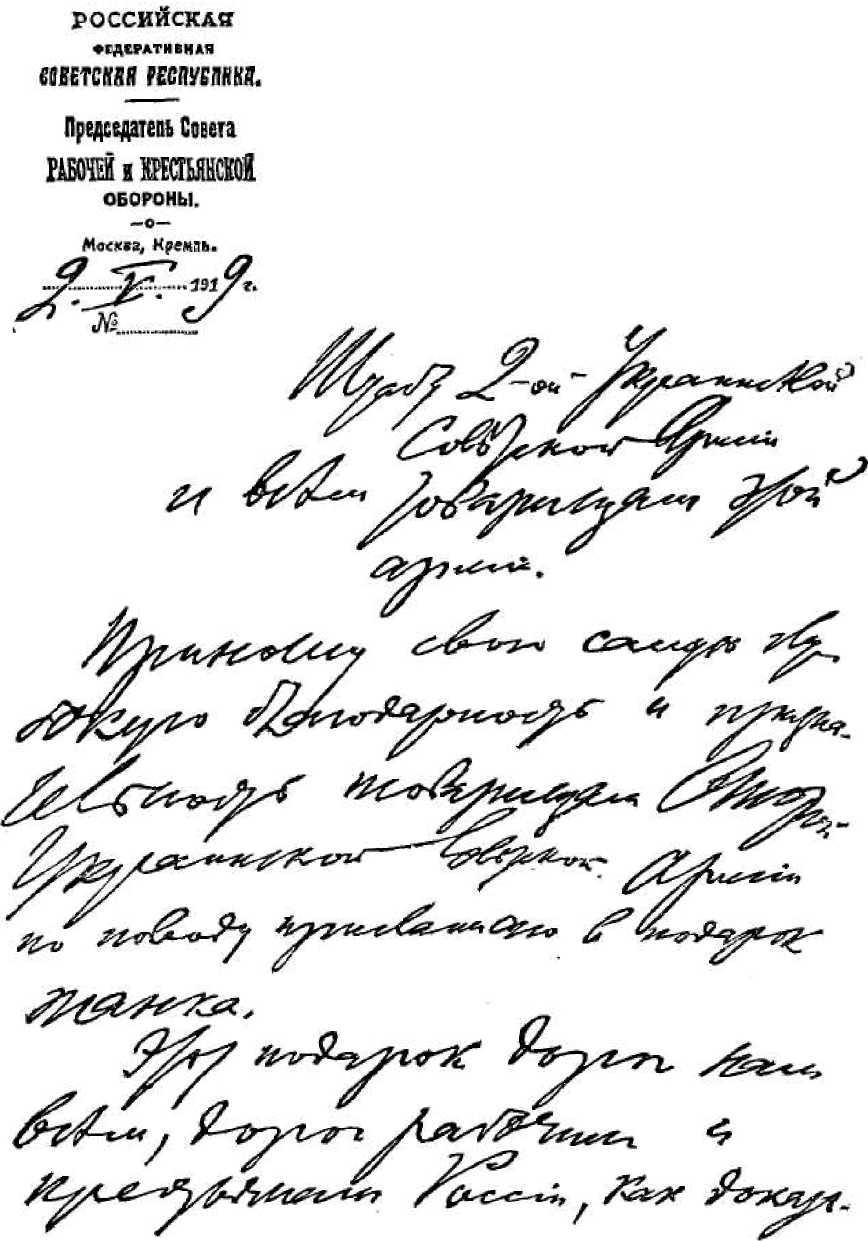 РОССИЙСКАЯ
ФЕДЕРАТИВНАЯ
СОВЕТСКАЯ РЕСПУБЛИКА.
Председатель Совета
РАБОЧЕЙ и КРЕСТЬЯНСКОЙ
ОБОРОНЫ.
—о—
Москва, Кремль.
2. V. 1919 г.
№
Штабу 2-ой Украинской
Советской Армии
и всѣм товарищам этой
армии.
Приношу свою самую глу-
бокую благодарность и призна-
тельность товарищам Второй
Украинской Советской Армии
по поводу присланного в подарок
танка.
Этот подарок дорог нам
всѣм, дорог рабочим и
крестьянам России, как доказа-